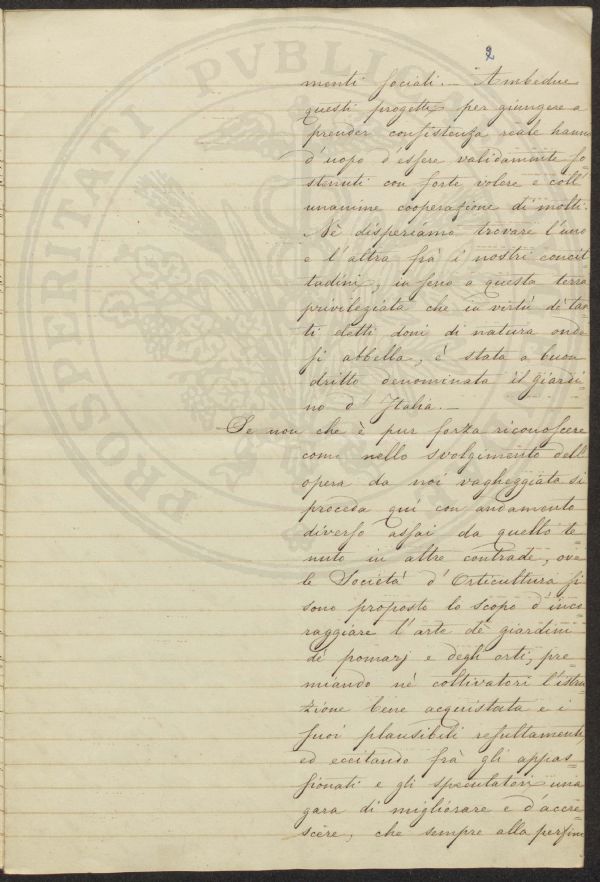 2
menti sociali. — Ambedue
questi progetti per giungere a
prender consistenza reale hanno
d'uopo d'essere validamente so
stenuti con forte volere e coll'
unanime cooperazione di molti.
Nè disperiamo trovare l'uno
e l'altra frà i nostri concit
tadini, in seno a questa terra
privilegiata che in virtù dè tan
ti eletti doni di natura onde
si abbella, è stata a buon
dritto denominata il giardi
no d'Italia. —
Se non che è pur forza riconoscere
come nello svolgimento dell'
opera da noi vagheggiata si
proceda quì con andamento
diverso assai da quello te=
nuto in altre contrade, ove
le Società d'Orticultura si
sono proposte lo scopo d'inco
raggiare l'arte dè giardini
dè pomarj e degli orti, pre=
miando nè coltivatori l'istru
zione bene acquistata e i
suoi plausibili resultamenti,
ed eccitando frà gli appas=
sionati e gli speculatori una
gara di migliorare e d'accre
scere, che sempre alla perfine
PROSPERITATI PVBLICAE